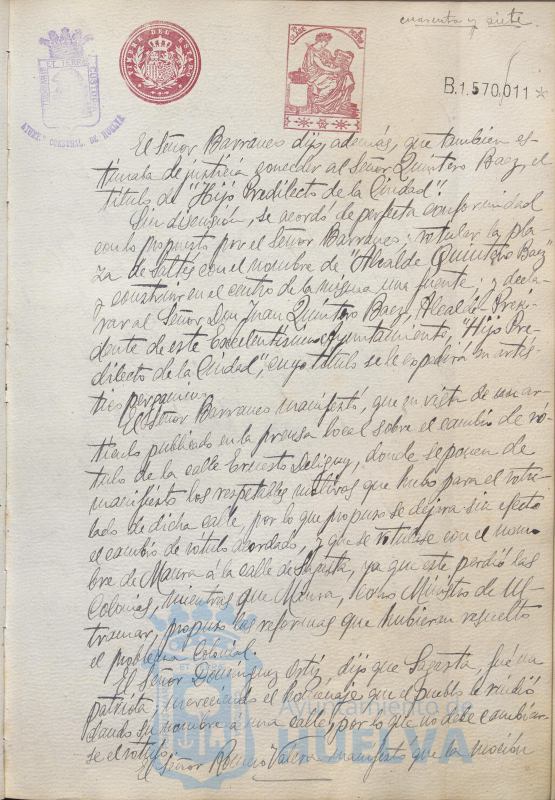 cuarenta y siete
TIMBRE DEL ESTADO
AYUNT. CONSTNAL. DE HUELVA
B.1.570.011 *
El Señor Barranco dijo, además, que también es-
timaba de justicia conceder al Señor Quintero Baez, el
título de "Hijo Predilecto de la Ciudad".
Sin discusión, se acordó de perfecta conformidad
con lo propuesto por el Señor Barranco; rotular la pla-
za de Saltés con el nombre de "Alcalde Quintero Baez"
y construir en el centro de la misma una fuente, y decla-
rar al Señor Don Juan Quintero Baez, Alcalde-Presi-
dente de este Excelentísimo Ayuntamiento, "Hijo Pre-
dilecto de la Ciudad", cuyo título se le expedirá en artís-
tico pergamino.
El Señor Barranco manifestó, que en vista de un ar-
tículo publicado en la prensa local sobre el cambio de ró-
tulo de la calle Ernesto Deligny, donde se ponen de
manifiesto los respetables motivos que hubo para el rotu-
lado de dicha calle, por lo que propuso se dejara sin efecto
el cambio de rótulo acordado, y que se rotulase con el nom-
bre de Maura á la calle de Sagasta, ya que este perdió las
Colonias, mientras que Maura, como Ministro de Ul-
tramar, propuso las reformas que hubieran resuelto
el problema Colonial.
El Señor Domínguez Ortiz, dijo que Sagasta, fué un
patriota, mereciendo el homenaje que el pueblo le rindió
dando su nombre á una calle, por lo que no debe cambiar-
se el rótulo.
El Señor Romero Valera manifestó que la moción
Ayuntamiento de
HUELVA